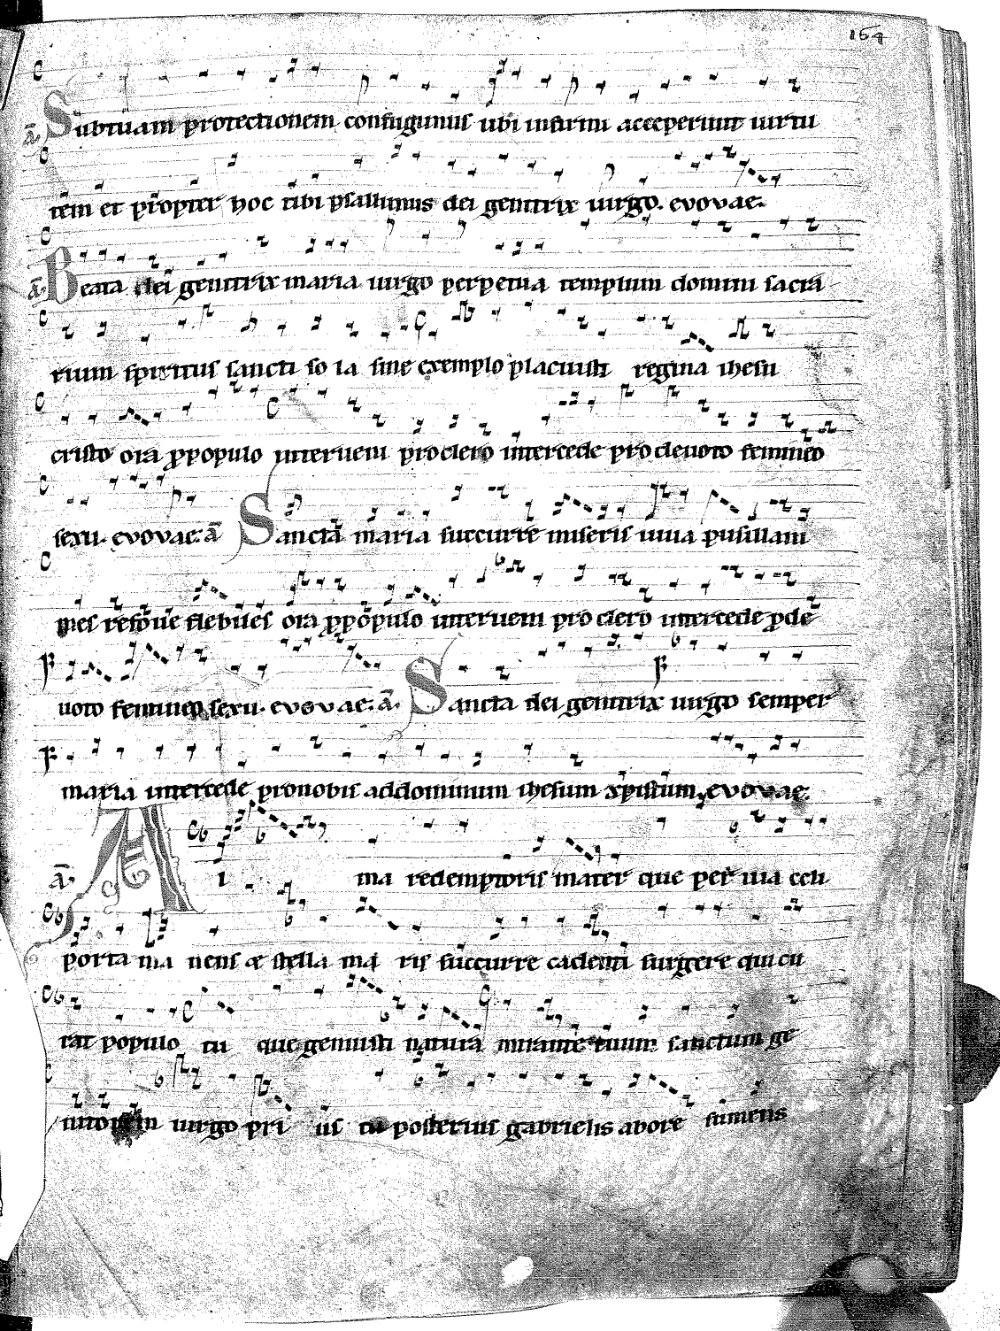 164
ā Sub tuam protectionem confugimus ubi infirmi acceperunt uirtu
tem et propter hoc tibi psallimus dei genitrix uirgo. evovae.
ā Beata dei genitrix maria uirgo perpetua templum domini sacra
rium spiritus sancti so la sine exemplo placuisti regina ihesu
cristo ora p populo interueni pro clero intercede pro deuoto femineo
sexu. evovae. ā Sancta maria succurre miseris iuua pusillani
mes refoue flebiles ora p populo interueni pro clero intercede p de
uoto femineo sexu. evovae. ā. Sancta dei genitrix uirgo semper
maria intercede pro nobis ad dominum ihesum xpistum. evovae.
ā. Al ma redemptoris mater que per uia celi
porta ma nens et stella ma ris succurre cadenti surgere qui cu
rat populo tu que genuisti natura mirante tuum sanctum ge
nitorem uirgo pri us ac posterius gabrielis abore sumens